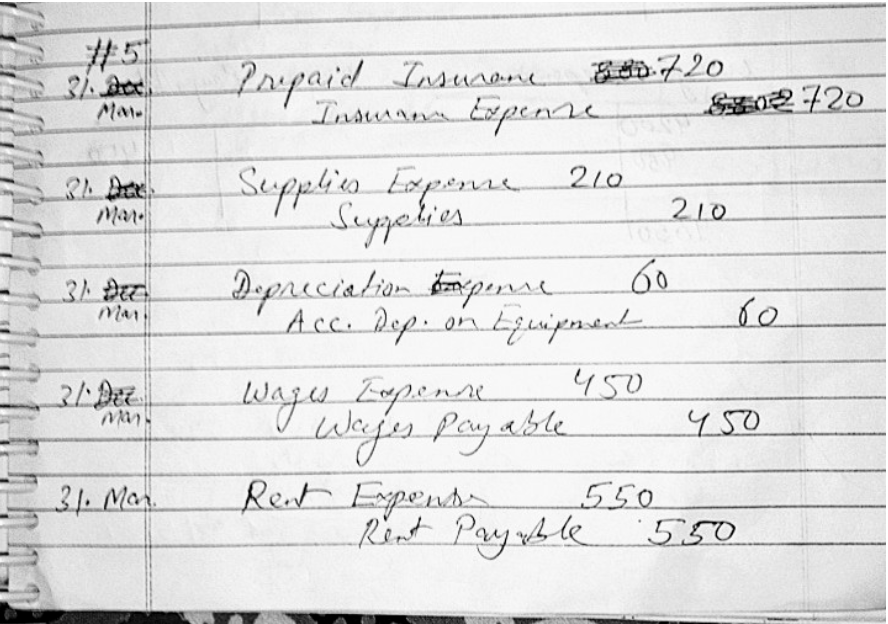 #5
31. Mar. Prepaid Insurance 720
Insurance Expense 720
31. Mar. Supplies Expense 210
Supplies 210
31. Mar. Depreciation Expense 60
Acc. Dep. on Equipment 60
31. Mar. Wages Expense 450
Wages Payable 450
31. Mar. Rent Expense 550
Rent Payable 550